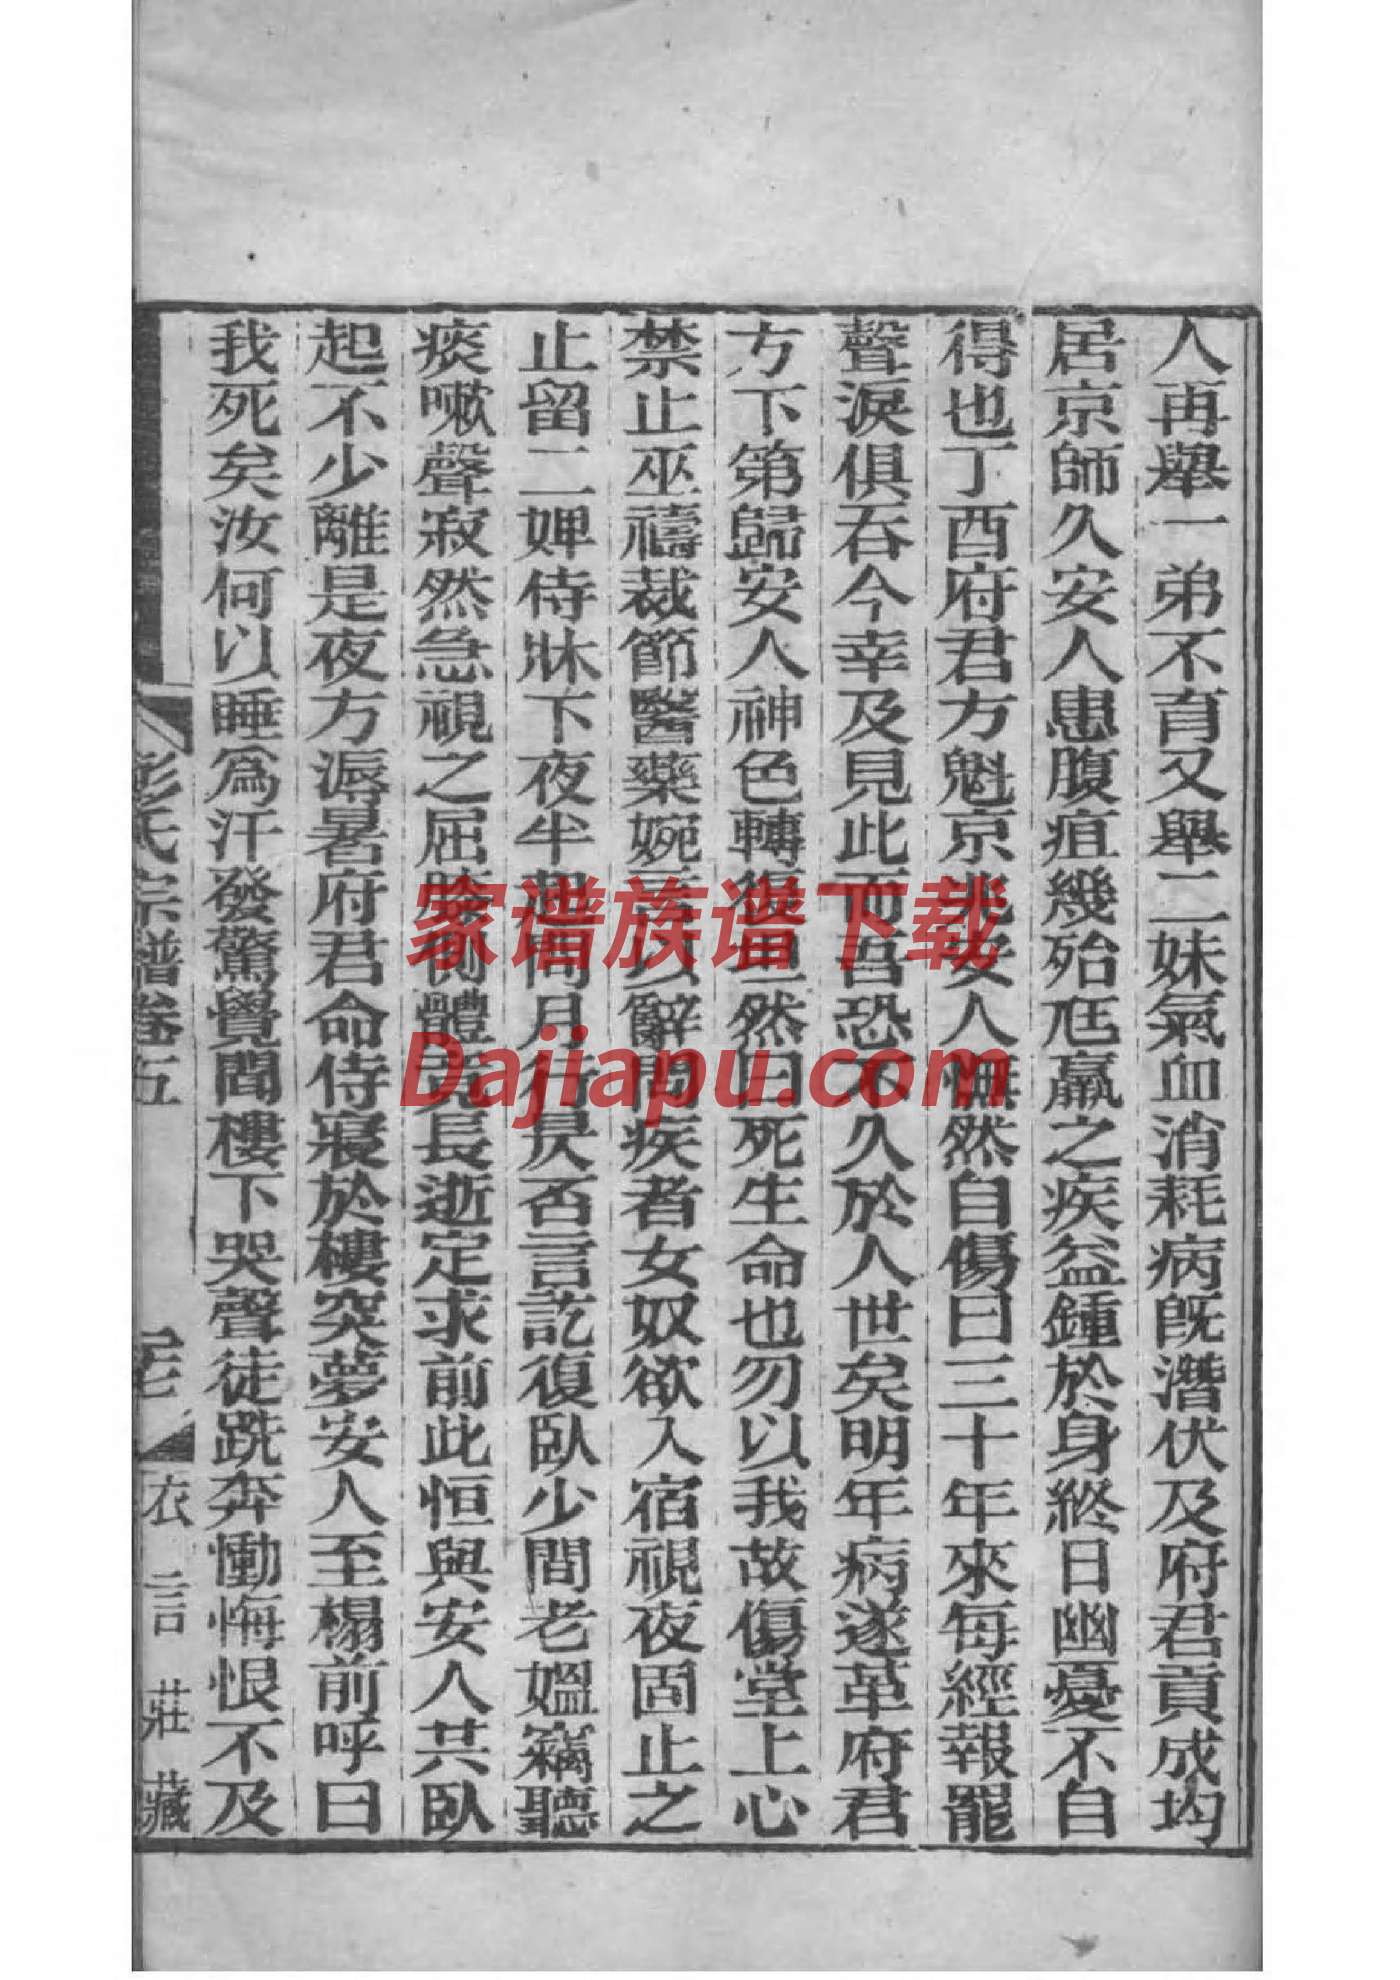 人再舉一弟不育又舉二妹氣血消耗病旣潛伏及府君貢成均
居京師久安人患腹疽幾殆尫羸之疾益鍾於身終日幽憂不自
得也丁酉府君方魁京兆安人憮然自傷曰三十年來每經報罷
聲淚俱吞今幸及見此而吾恐不久於人世矣明年病遂革府君
方下第歸安人神色轉復思然曰死生命也勿以我故傷堂上心
禁止巫禱裁節醫藥婉言以辭問疾者女奴欲入宿視夜固止之
止留二婢侍牀下夜半起問月行昃否言訖復臥少間老媼竊聽
痰嗽聲寂然急視之屈膝側體竟長逝定求前此恒與安人共臥
起不少離是夜方溽暑府君命侍寢於樓突夢安人至榻前呼曰
我死矣汝何以睡爲汗發驚覺聞樓下哭聲徒跣奔慟悔恨不及
彭氏宗譜卷五
衣言莊藏
家谱族谱下载
Dajiapu.com